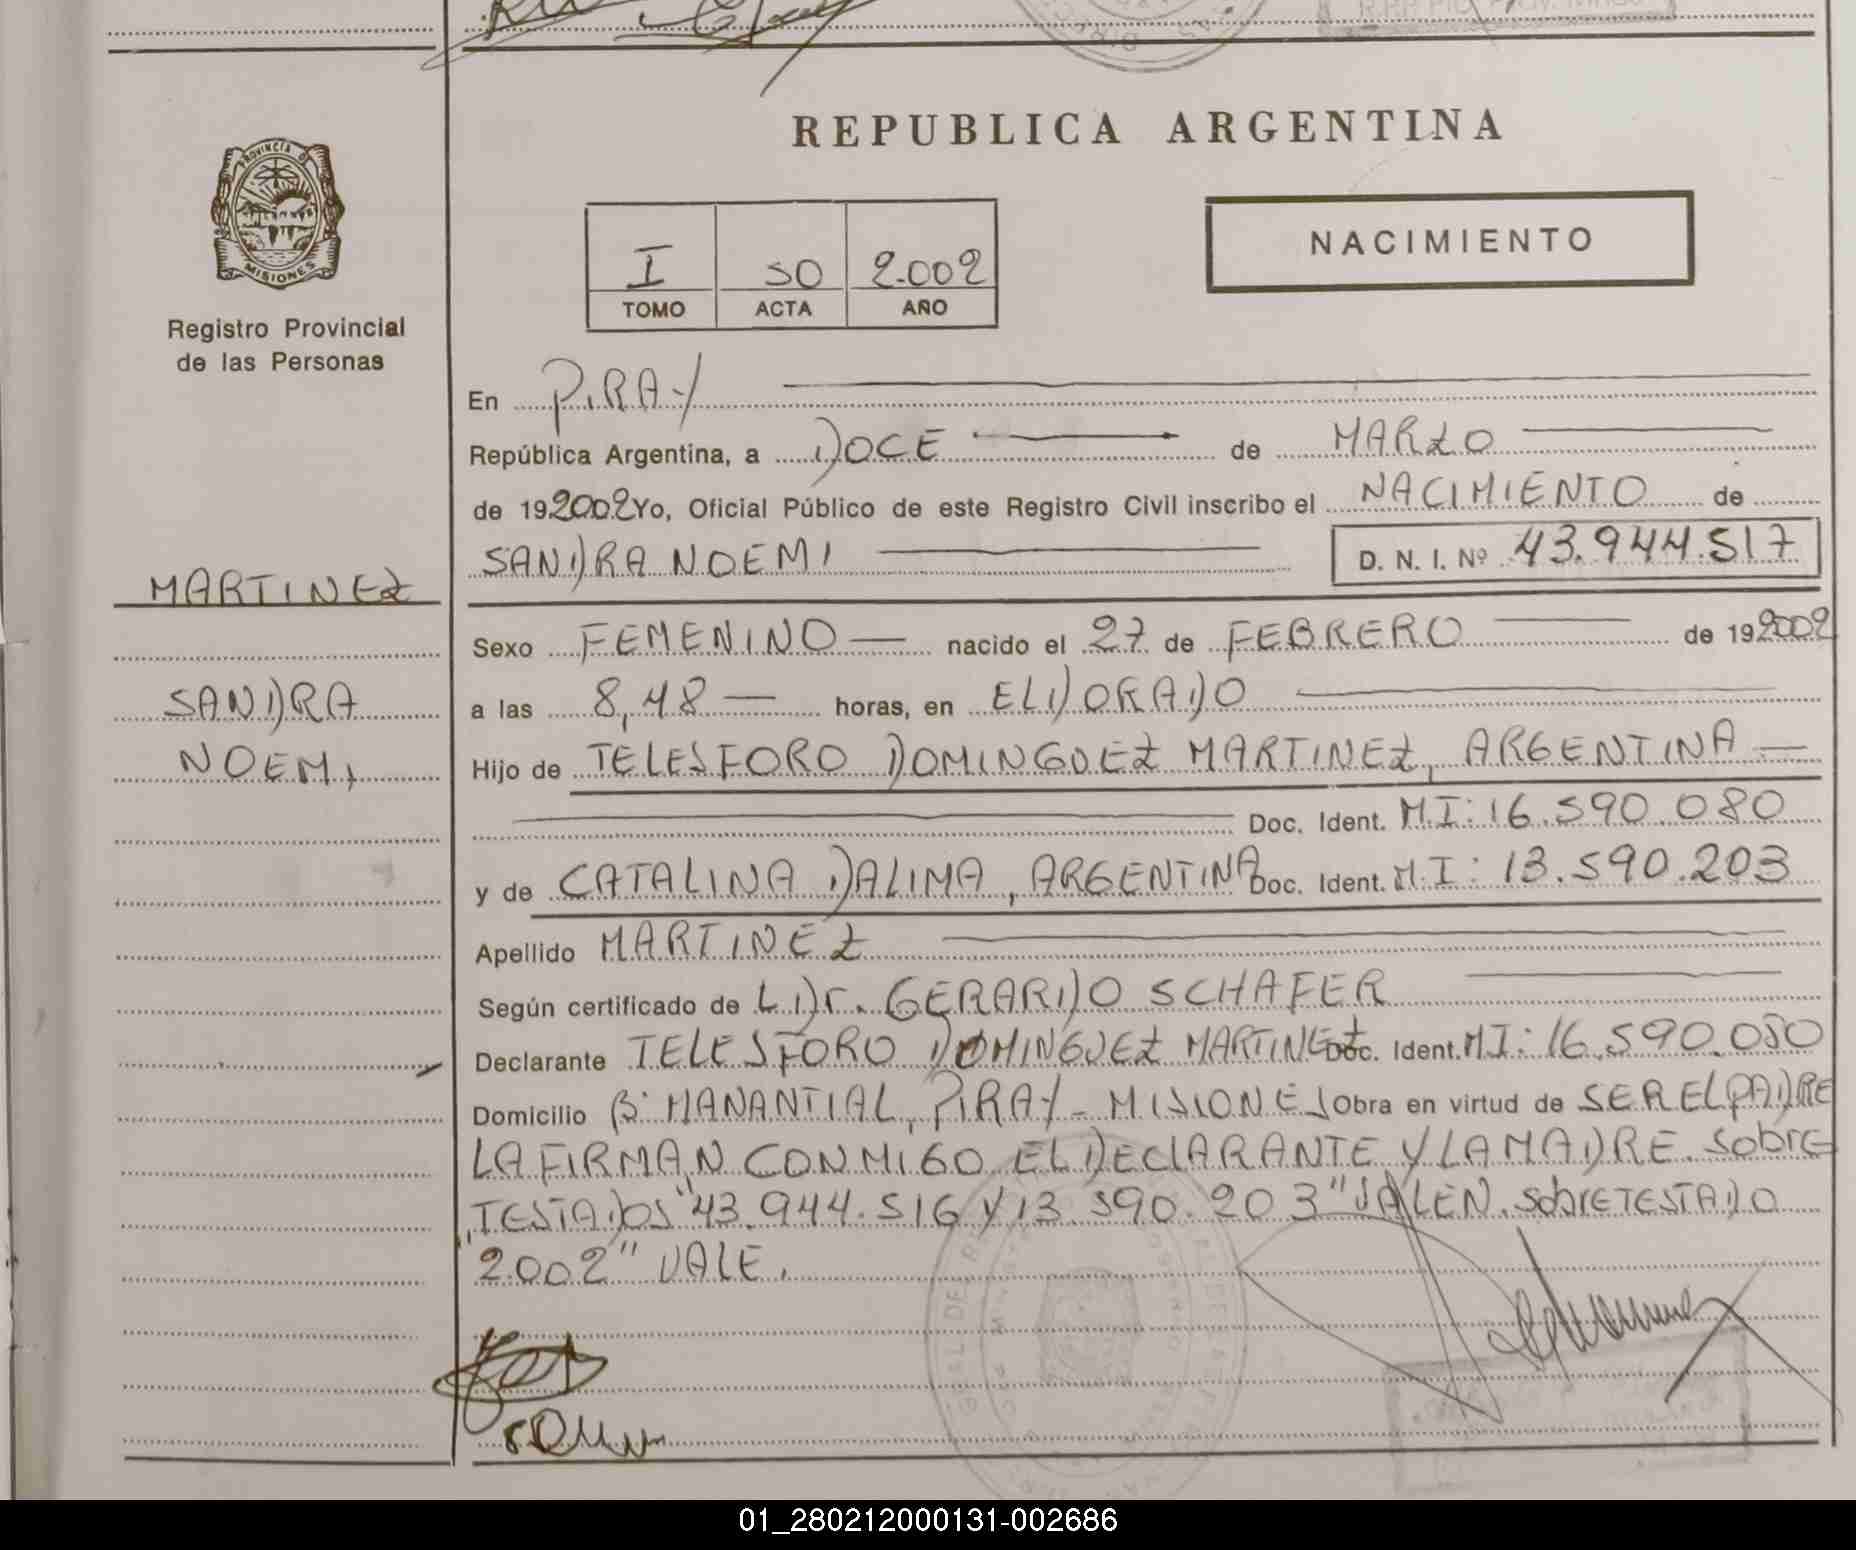 REPUBLICA ARGENTINA
PROVINCIA DE
MISIONES
Registro Provincial
de las Personas
I 50 2.002
TOMO ACTA AÑO
NACIMIENTO
En PIRAY
República Argentina, a DOCE de MARZO
de 19 2002 Yo, Oficial Público de este Registro Civil inscribo el NACIMIENTO de
SANDRA NOEMI D. N. I. Nº 43.944.517
MARTINEZ
SANDRA
NOEMI
Sexo FEMENINO nacido el 27 de FEBRERO de 19 2002
a las 8,48 horas, en ELDORADO
Hijo de TELESFORO DOMINGUEZ MARTINEZ, ARGENTINA
Doc. Ident. M.I: 16.590.080
y de CATALINA DALIMA, ARGENTINA Doc. Ident. M.I: 13.590.203
Apellido MARTINEZ
Según certificado de L Dr. GERARDO SCHAFER
Declarante TELESFORO DOMINGUEZ MARTINEZ Doc. Ident. MI: 16.590.080
Domicilio Bº MANANTIAL, PIRAY - MISIONES Obra en virtud de SER EL PADRE
LA FIRMAN CONMIGO EL DECLARANTE Y LA MADRE. SobrE
TESTADOS "43.944.516 Y 13.590.203" VALEN. SobrETESTADO
"2.002" VALE.
01_280212000131-002686